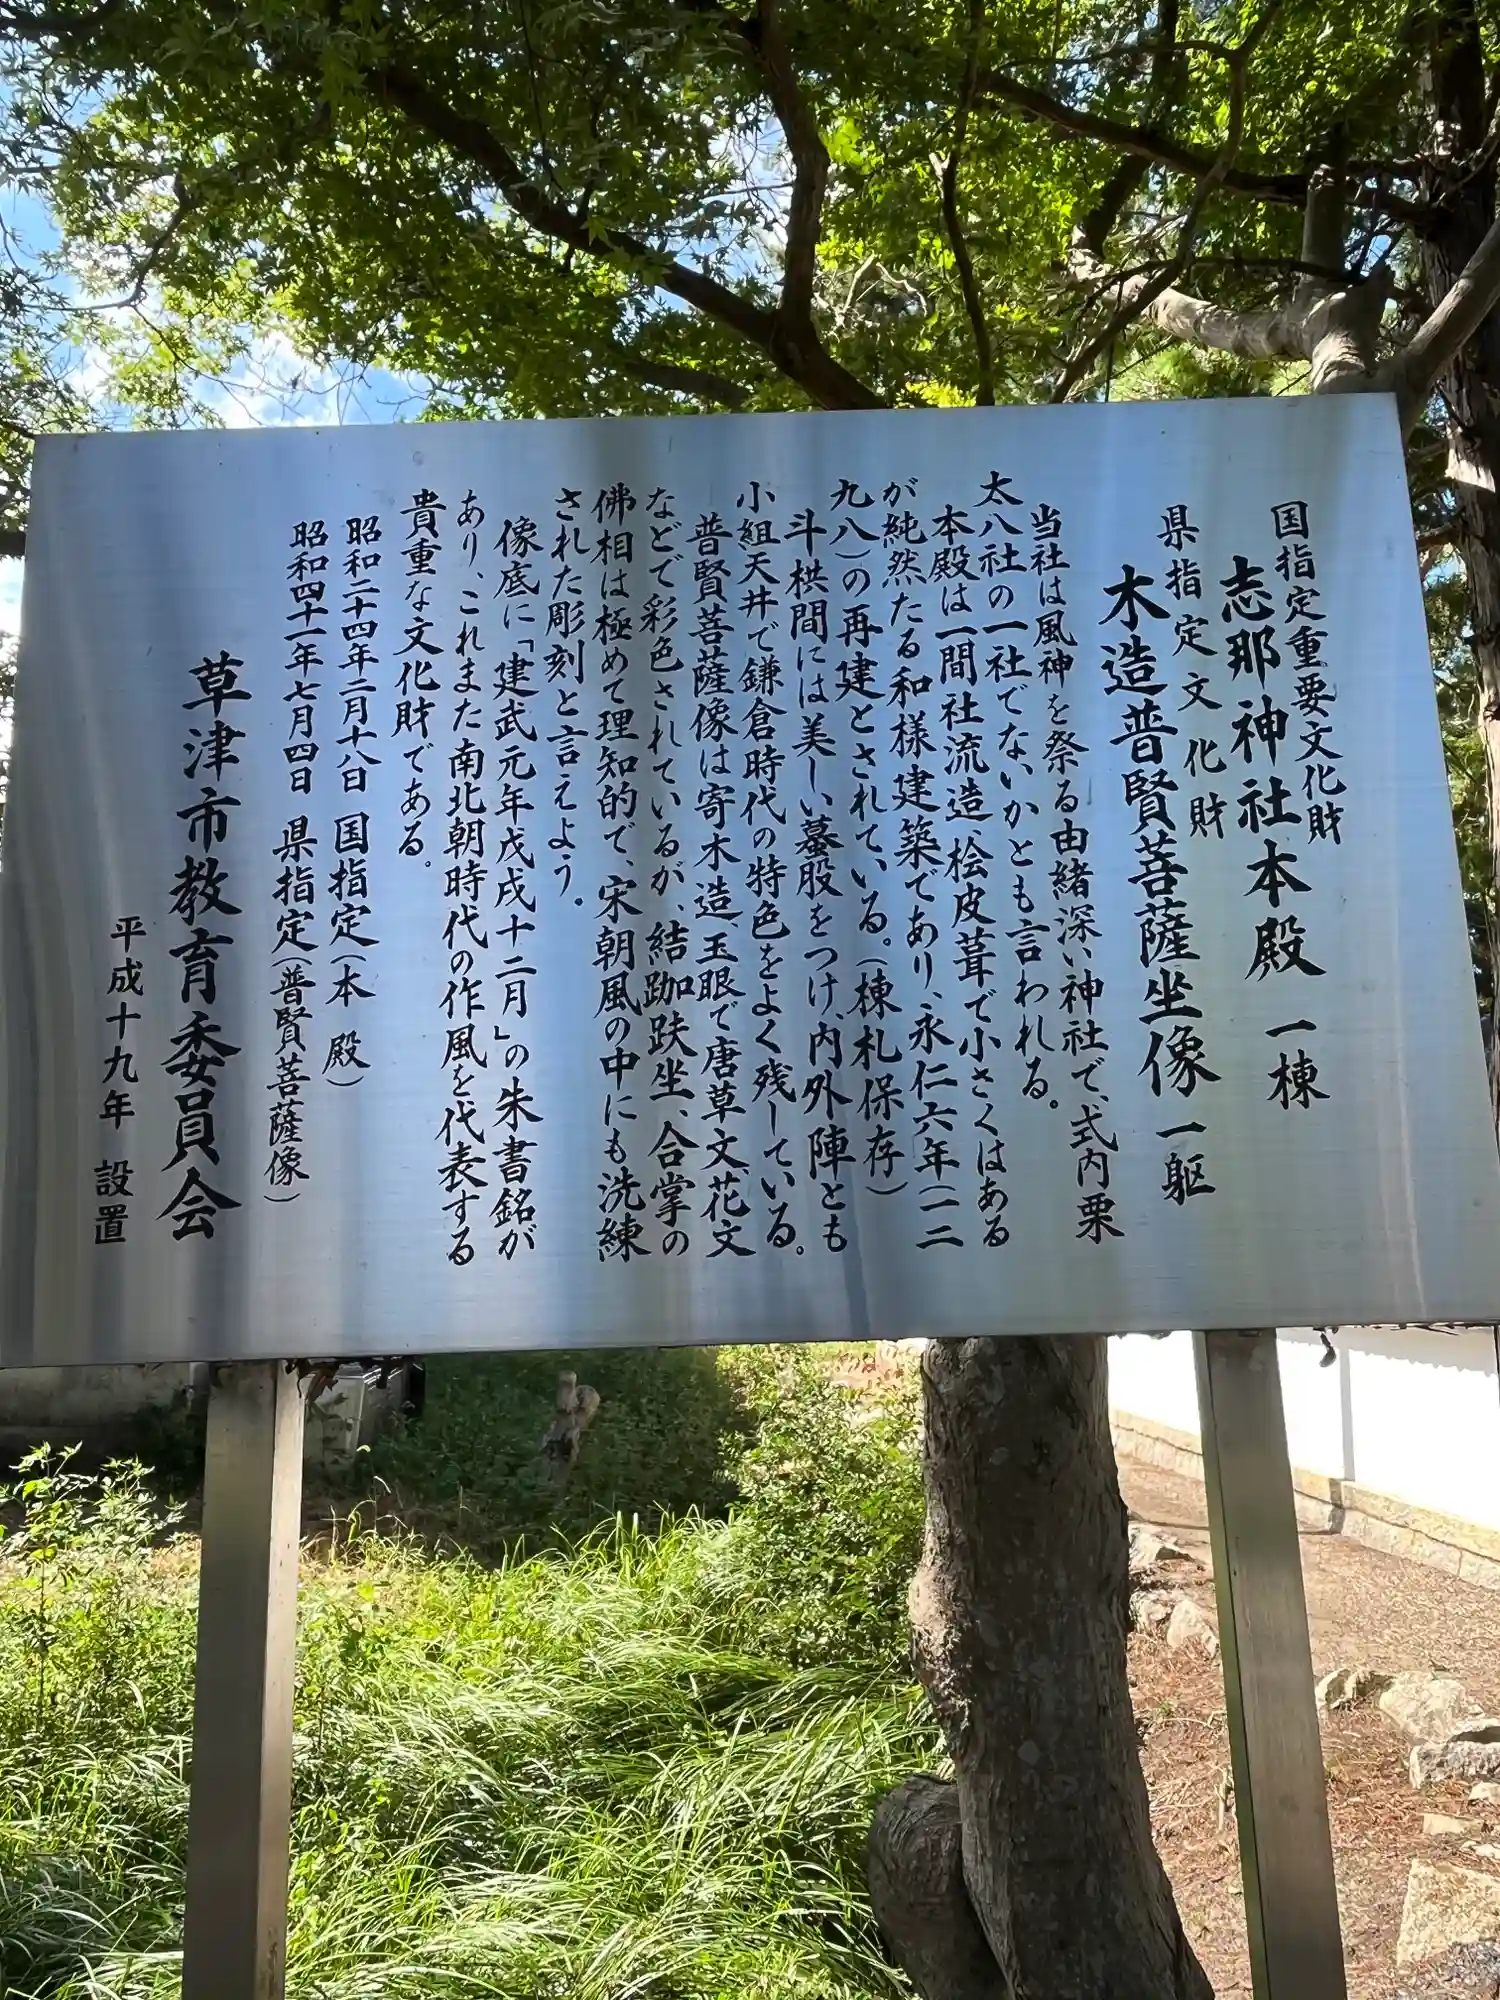 国指定重要文化財
志那神社本殿 一棟
県指定文化財
木造普賢菩薩坐像 一躯
当社は風神を祭る由緒深い神社で、式内栗
太八社の一社でないかとも言われる。
本殿は一間社流造、桧皮葺で小さくはある
が純然たる和様建築であり、永仁六年(一二
九八)の再建とされている。(棟札保存)
斗栱間には美しい蟇股をつけ、内外陣とも
小組天井で鎌倉時代の特色をよく残している。
普賢菩薩像は寄木造、玉眼で唐草文、花文
などで彩色されているが、結跏趺坐、合掌の
佛相は極めて理知的で、宋朝風の中にも洗練
された彫刻と言えよう。
像底に「建武元年戊戌十二月」の朱書銘が
あり、これまた南北朝時代の作風を代表する
貴重な文化財である。
昭和二十四年二月十八日 国指定(本 殿)
昭和四十一年七月四日 県指定(普賢菩薩像)
草津市教育委員会
平成十九年 設置